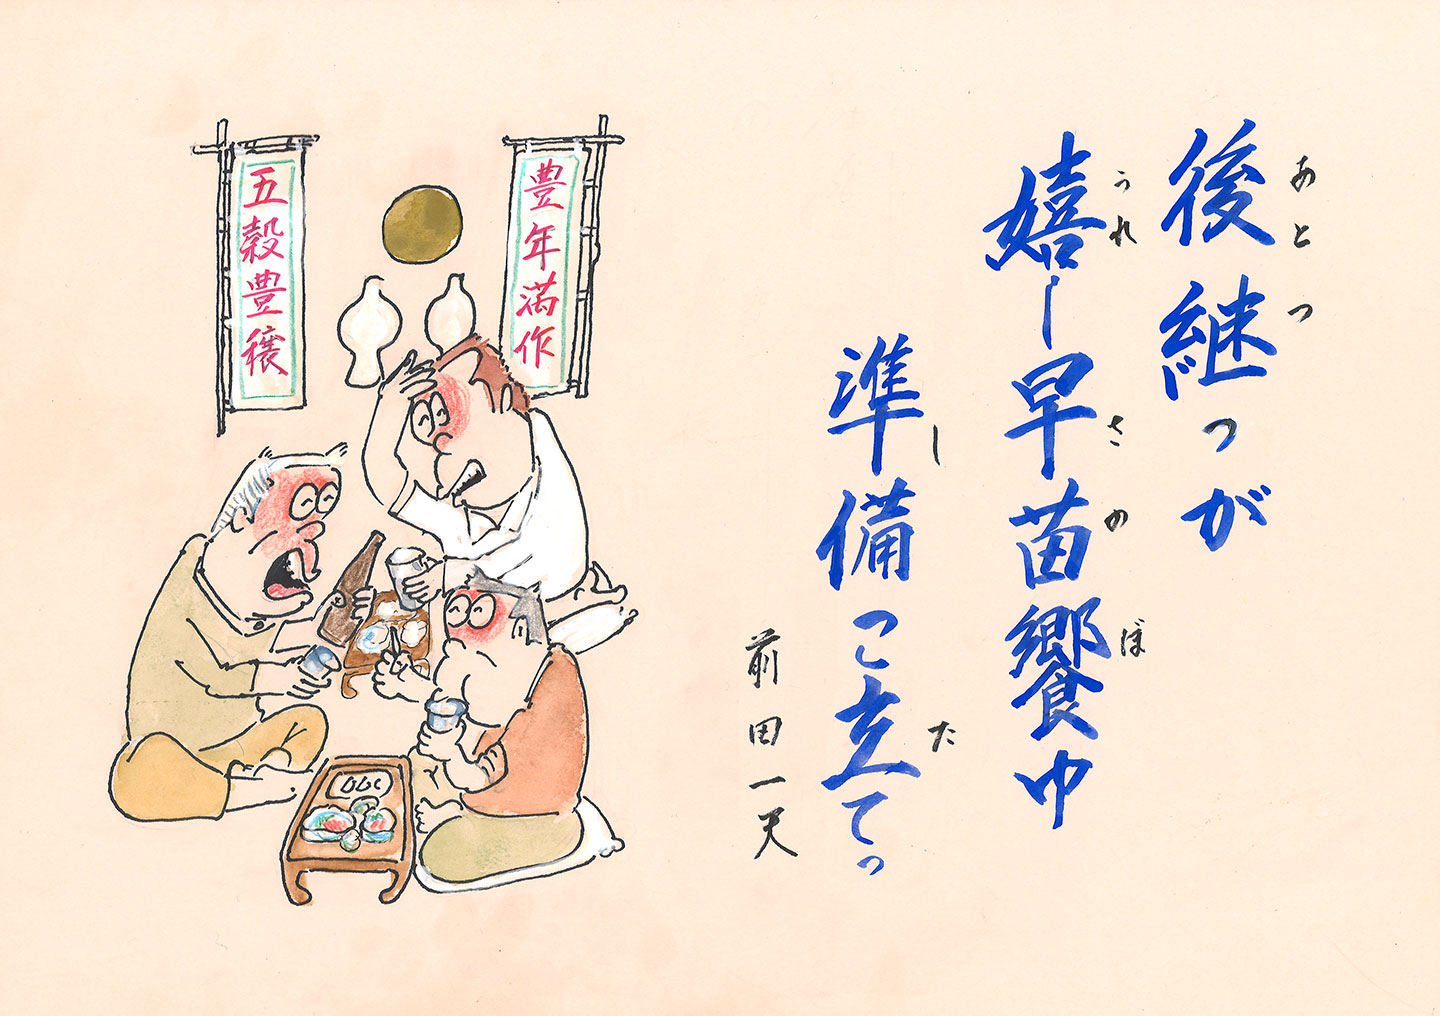 あとつ
後継っが
うれ さのぼ
嬉し早苗饗ゆ
し た
準備こ立てっ
前田一天
豊年満作
五穀豊穣